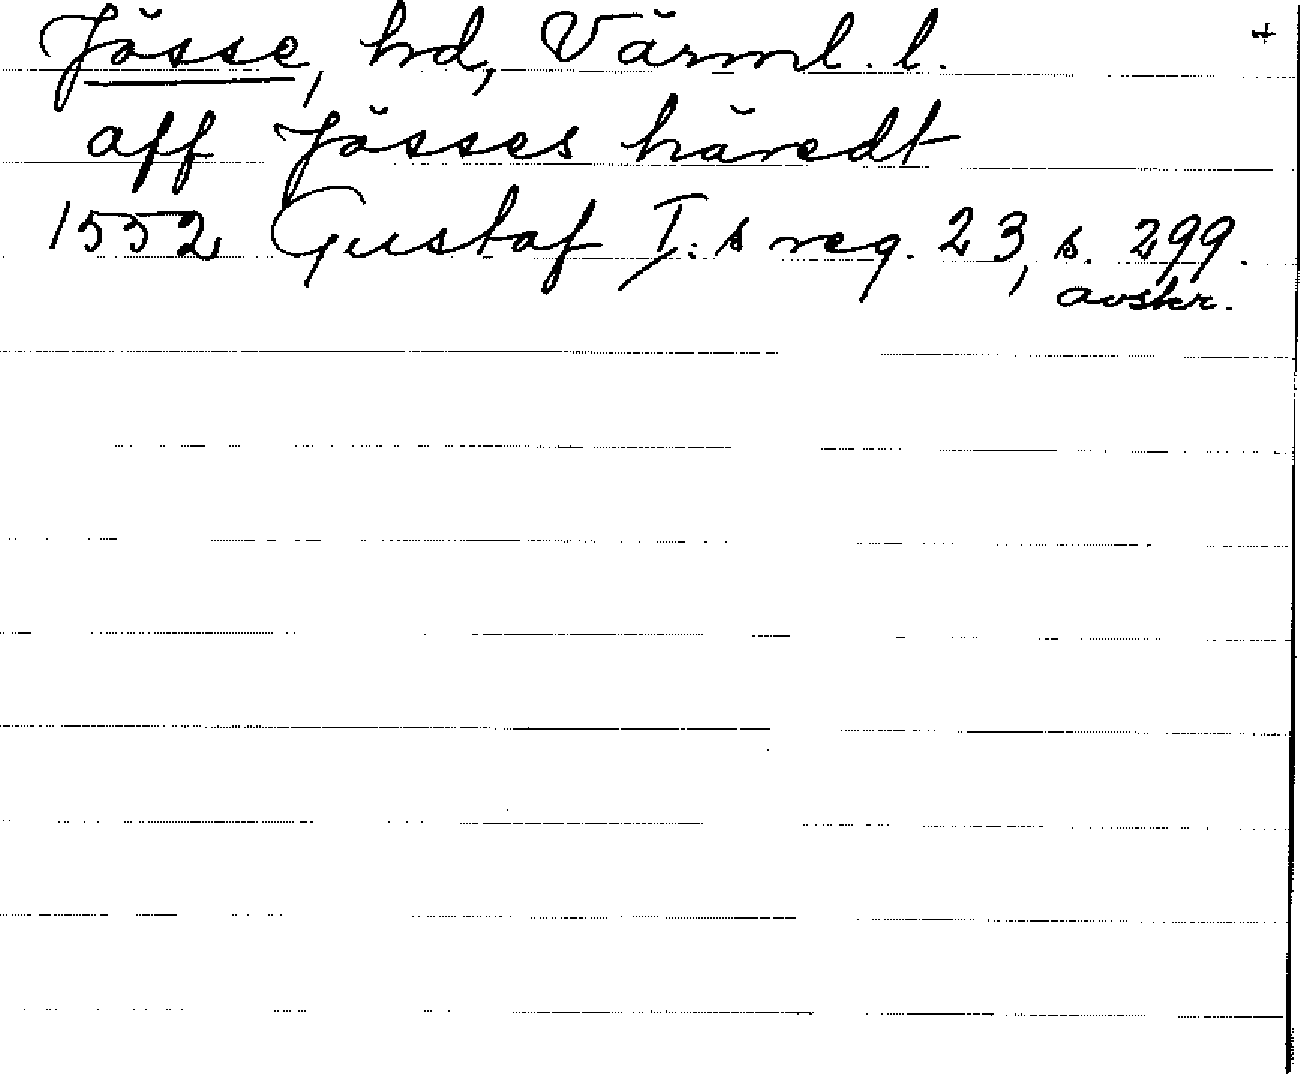 Jösse, hd, Värml. l. +
aff Jösses häredt
1552 Gustaf I:s reg. 23, s. 299.
avskr.